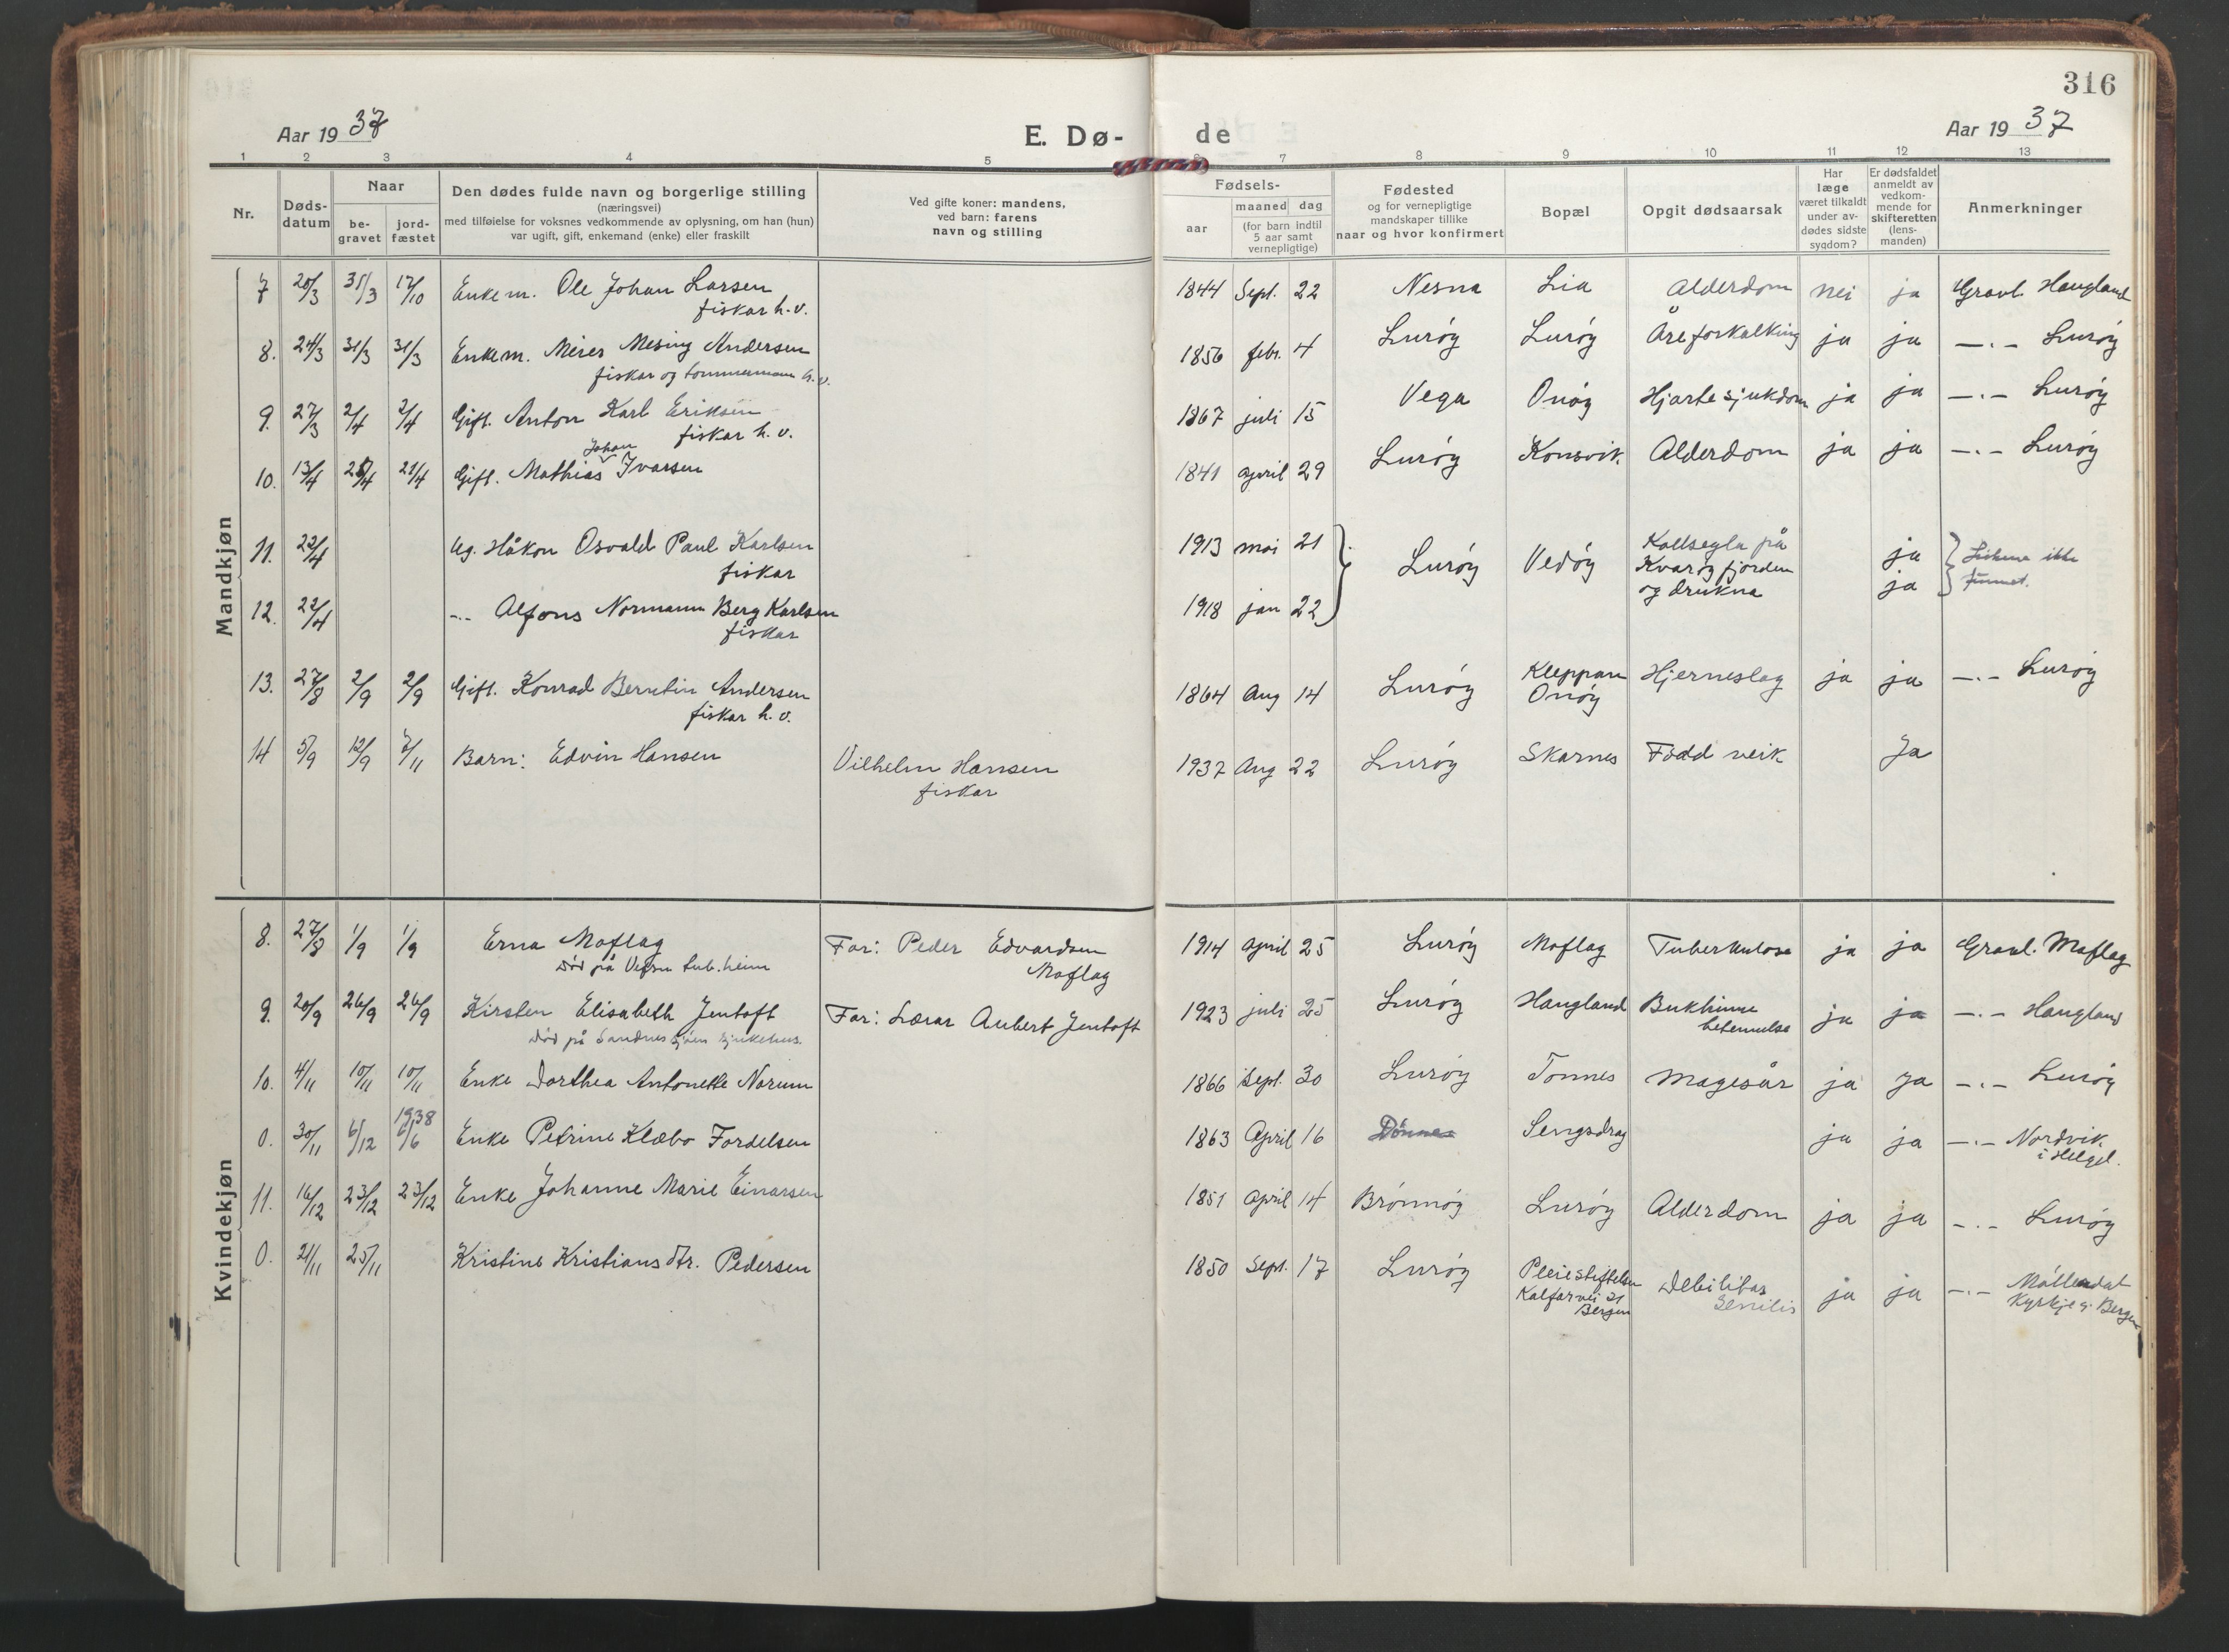 316
Aar 19 37
E. Dø-
de
Aar 19 37
1 2 3 4 5 6 7 8 9 10 11 12 13
Nr.
Døds-
datum
Naar
be-
gravet
jord-
fæstet
Den dødes fulde navn og borgerlige stilling
(næringsvei)
med tilføielse for voksnes vedkommende av oplysning, om han (hun)
var ugift, gift, enkemand (enke) eller fraskilt
Ved gifte koner: mandens,
ved barn: farens
navn og stilling
Fødsels-
aar
maaned dag
(for barn indtil
5 aar samt
vernepligtige)
Fødested
og for vernepligtige
mandskaper tillike
naar og hvor konfirmert
Bopæl
Opgit dødsaarsak
Har
læge
været tilkaldt
under av-
dødes sidste
sygdom?
Er dødsfaldet
anmeldt av
vedkom-
mende for
skifteretten
(lens-
manden)
Anmerkninger
Mandkjøn
7 20/3 31/3 17/10 Enkem. Ole Johan Larsen 1844 Sept. 22 Nesna Lia Alderdom nei ja Gravl. Haugland
fiskar h.v.
8. 24/3 31/3 31/3 Enkem. Meier Mesing Andersen 1856 febr. 4 Lurøy Lurøy Åreforkalking ja ja —.— Lurøy
fiskar og tommermann h.v.
9. 27/3 2/4 2/4 Gift. Anton Karl Eriksen 1867 juli 15 Vega Onøy Hjartesjukdom ja ja —.— Lurøy
fiskar h.v.
Johan
10. 13/4 21/4 21/4 Gift. Mathias Ivarsen 1841 april 29 Lurøy Konsvik Alderdom ja ja —.— Lurøy
11. 22/4 Ug. Håkon Osvald Paul Karlsen 1913 mai 21 Lurøy Vedøy Kollsegla på ja Likene ikke
fiskar Kvarøyfjorden ja funnet.
og drukna
12. 22/4 -.- Alfons Normann Berg Karlsen 1918 jan 22
fiskar
13. 27/8 2/9 2/9 Gift. Konrad Berntin Andersen 1864 Aug 14 Lurøy Kleppan Hjerneslag ja ja —.— Lurøy
fiskar h.v. Onøy
14 5/9 12/9 7/11 Barn: Edvin Hansen Vilhelm Hansen 1937 Aug 22 Lurøy Skarnes Född veik Ja
fiskar
Kvindekjøn
8. 27/8 1/9 1/9 Erna Moflag Far: Peder Edvardsen 1914 april 25 Lurøy Moflag Tuberkulose ja ja Gravl. Moflag
Død på Vefsn tub.heim Moflag
9. 20/9 26/9 26/9 Kirsten Elisabeth Jentoft Far: Lærar Aubert Jentoft 1923 juli 25 Lurøy Haugland Bukhinne ja ja —.— Haugland
Død på Sandnessjøen sjukehus. betennelse
10. 4/11 10/11 10/11 Enke Dorthea Antonette Norum 1866 Sept. 30 Lurøy Tonnes Magesår ja ja —.— Lurøy
1938
0. 30/11 6/12 6/6 Enke Petrine Klæbo Fordelsen 1863 April 16 Dønnes Sengsdrag ja ja —.— Nordvik
i Helgel.
11. 16/12 23/12 23/12 Enke Johanne Marie Einarsen 1851 april 14 Brønnøy Lurøy Alderdom ja ja —.— Lurøy
0. 21/11 25/11 Kristine Kristiansdtr. Pedersen 1850 Sept. 17 Lurøy Pleiestiftelsen Debilitas ja ja —.— Møllendal
Kalfarvei 21 Senilis Kyrkje g. Bergen
Bergen